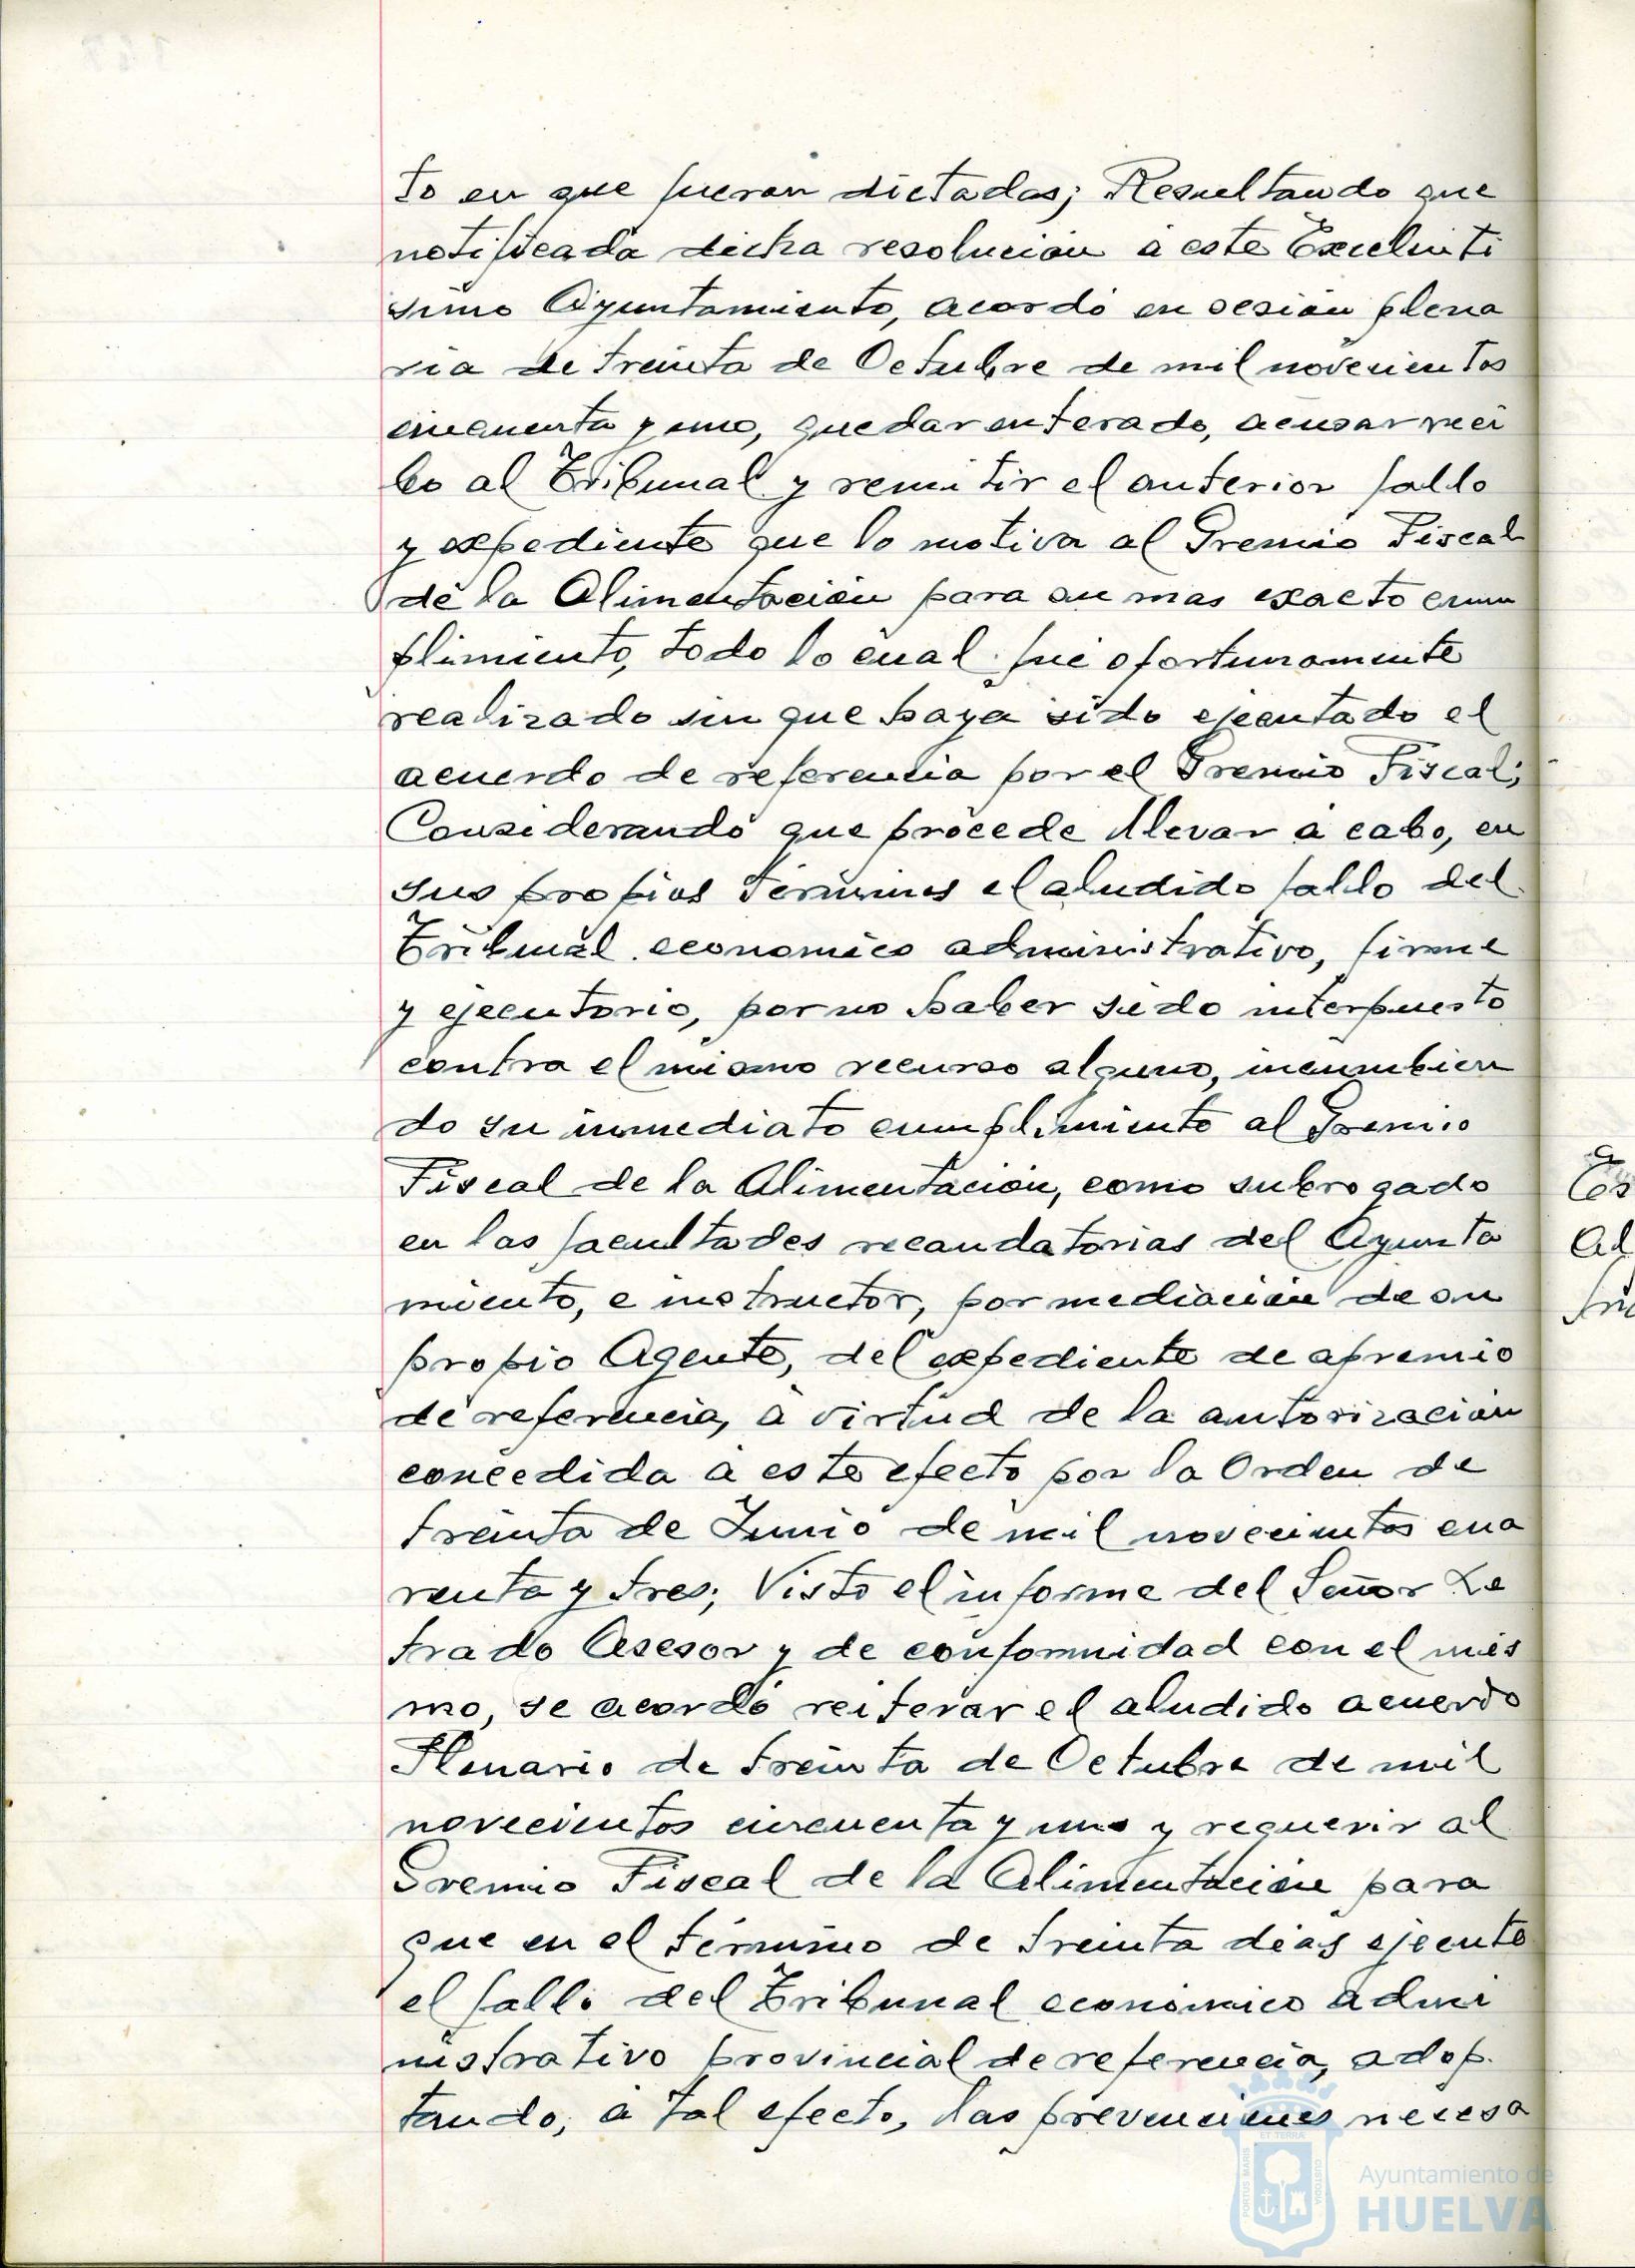 to en que fueron dictadas; Resultando que
notificada dicha resolución a este Excelenti
simo Ayuntamiento, acordó en sesión plena
ria de treinta de Octubre de mil novecientos
cincuenta y uno, quedar enterado, acusar reci
bo al Tribunal y remitir el anterior fallo
y expediente que lo motiva al Gremio Fiscal
de la Alimentación para su mas exacto cum
plimiento, todo lo cual fué oportunamente
realizado sin que haya sido ejecutado el
acuerdo de referencia por el Gremio Fiscal;
Considerando que procede llevar a cabo, en
sus propios términos el aludido fallo del
Tribunal economico administrativo, firme
y ejecutorio, por no haber sido interpuesto
contra el mismo recurso alguno, incumbien
do su inmediato cumplimiento al Gremio
Fiscal de la Alimentación, como subrogado
en las facultades recaudatorias del Ayunta
miento, e instructor, por mediación de su
propio Agente, del expediente de apremio
de referencia, a virtud de la autorización
concedida a este efecto por la Orden de
treinta de Junio de mil novecientos cua
renta y tres; Visto el informe del Señor Le
trado Asesor y de conformidad con el mis
mo, se acordó reiterar el aludido acuerdo
Plenario de treinta de Octubre de mil
novecientos cincuenta y uno y requerir al
Gremio Fiscal de la Alimentación para
que en el término de treinta dias ejecute
el fallo del Tribunal económico admi
nistrativo provincial de referencia, adop
tando, a tal efecto, las prevenciones necesa
Ayuntamiento de
HUELVA
PORTUS MARIS
ET TERRA
CUSTODIA